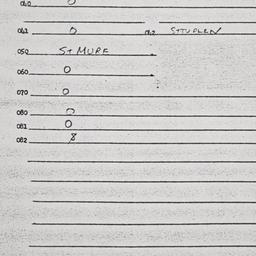 040 0
041 0 042 STTUPLEN
050 St MURE
060 0
070 0
080 0
081 0
082 8